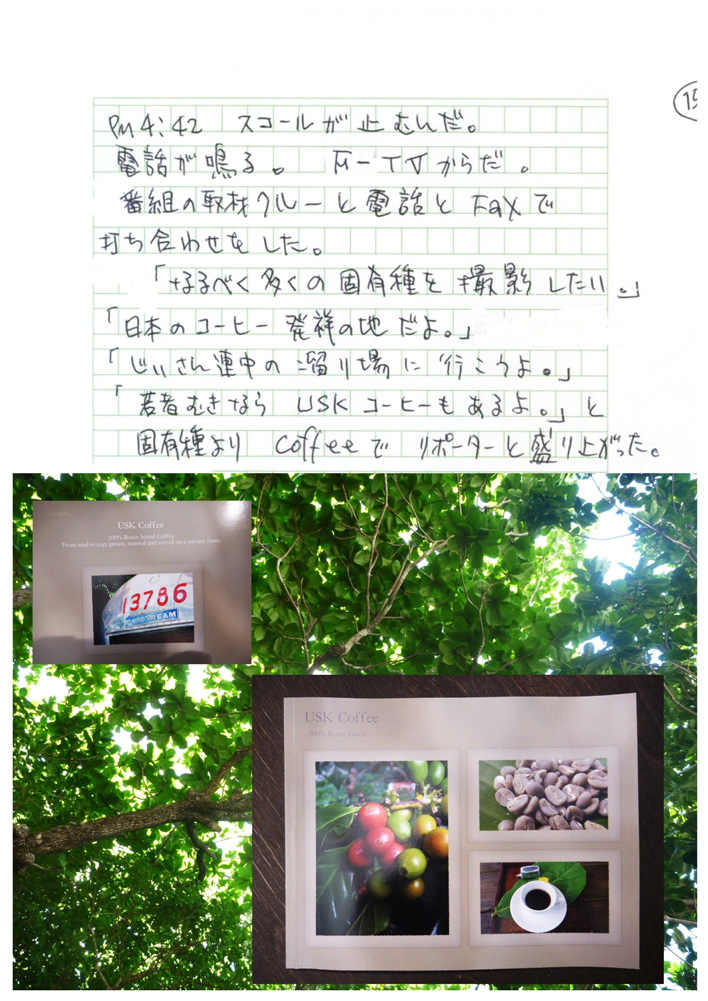 15
PM 4:42 スコールが止むんだ。
電話が鳴る。 M-TVからだ。
番組の取材クルーと電話とFaxで
打ち合わせをした。
「なるべく多くの固有種を撮影したい。」
「日本のコーヒー発祥の地だよ。」
「じいさん連中の溜り場に行こうよ。」
「若者むきなら USKコーヒーもあるよ。」と
固有種より coffeeで リポーターと盛り上がった。
USK Coffee
100% Bonin Island Coffee
From seed to cup grown, roasted and served on a private farm.
13786
USK Coffee
100% Bonin Island